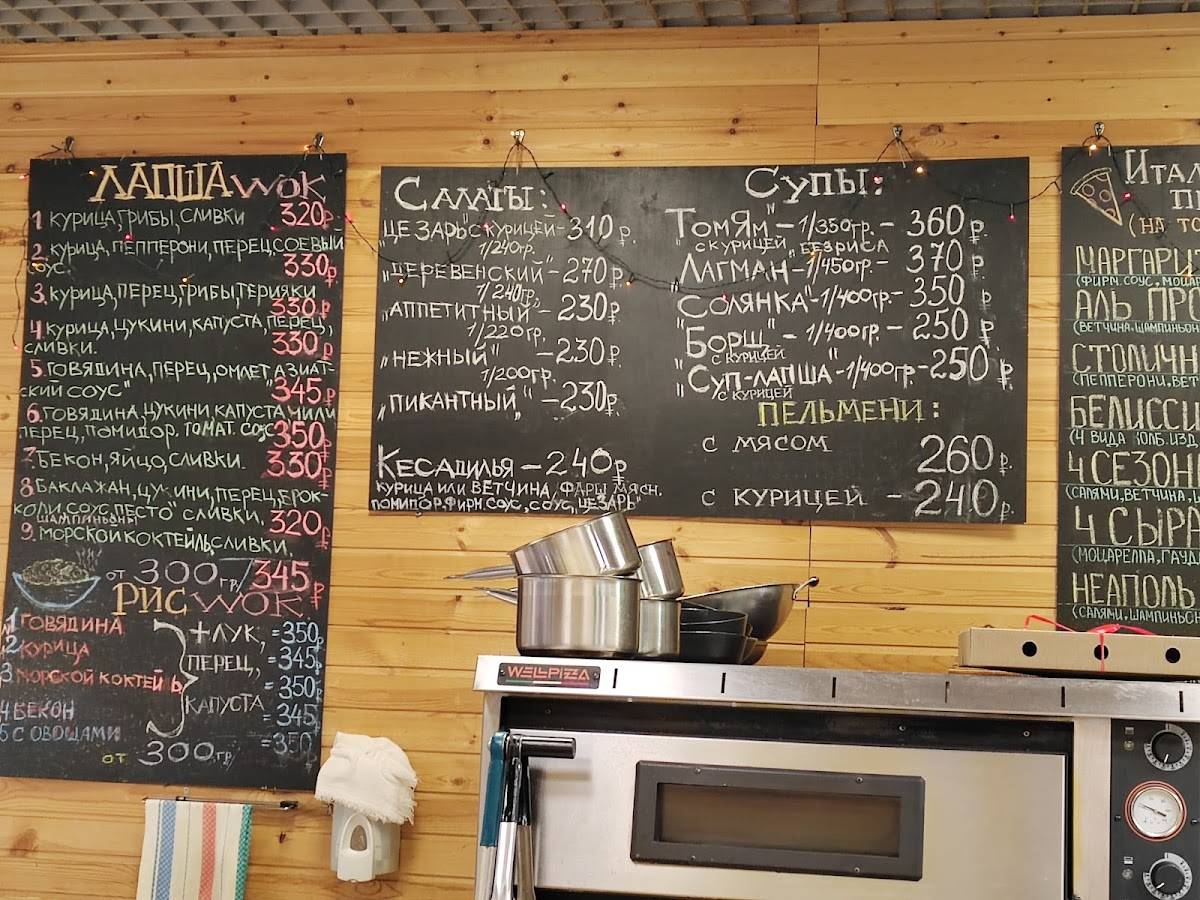 ЛАПША WOK
1 КУРИЦА, ГРИБЫ, СЛИВКИ 320₽
2. КУРИЦА, ПЕППЕРОНИ, ПЕРЕЦ, СОЕВЫЙ
СОУС. 330₽
3. КУРИЦА, ПЕРЕЦ, ГРИБЫ, ТЕРИЯКИ
330₽
4 КУРИЦА, ЦУКИНИ, КАПУСТА, ПЕРЕЦ,
СЛИВКИ. 330₽
5. ГОВЯДИНА, ПЕРЕЦ, ОМЛЕТ АЗИАТ-
СКИЙ СОУС" 345₽
6. ГОВЯДИНА, ЦУКИНИ, КАПУСТА ЧИЛИ
ПЕРЕЦ, ПОМИДОР. ТОМАТ. СОУС 350₽
7. БЕКОН, ЯЙЦО, СЛИВКИ. 330₽
8. БАКЛАЖАН, ЦУКИНИ, ПЕРЕЦ, БРОК-
КОЛИ, СОУС, ПЕСТО" СЛИВКИ, 320₽
ШАМПИНЬОНЫ
9. МОРСКОЙ КОКТЕЙЛЬ, СЛИВКИ,
ОТ 300 ГР/ 345₽
РИС WOK
1 ГОВЯДИНА + ЛУК, =350₽
2 КУРИЦА ПЕРЕЦ, =345₽
3 МОРСКОЙ КОКТЕЙЛЬ =350₽
КАПУСТА
4 БЕКОН =345₽
5 С ОВОЩАМИ =350₽
ОТ 300 ГР/
САЛАТЫ:
"ЦЕЗАРЬ" С КУРИЦЕЙ - 310₽.
1/240ГР.
"ДЕРЕВЕНСКИЙ" - 270₽
1/240ГР.
"АППЕТИТНЫЙ" - 230₽
1/220ГР.
"НЕЖНЫЙ" - 230₽
1/200ГР.
"ПИКАНТНЫЙ" - 230₽.
КЕСАДИЛЬЯ - 240₽
КУРИЦА ИЛИ ВЕТЧИНА, ФАРШ МЯСН.
ПОМИДОР, ФИРМ. СОУС, СОУС "ЦЕЗАРЬ"
СУПЫ:
"ТОМ ЯМ" - 1/350ГР. - 360₽.
С КУРИЦЕЙ БЕЗ РИСА
"ЛАГМАН" - 1/450ГР. - 370₽.
"СОЛЯНКА" - 1/400ГР. - 350₽
"БОРЩ" - 1/400ГР. - 250₽.
С КУРИЦЕЙ
"СУП-ЛАПША" - 1/400ГР. - 250₽.
С КУРИЦЕЙ
ПЕЛЬМЕНИ:
С МЯСОМ 260₽.
С КУРИЦЕЙ - 240₽.
ИТАЛ
П
(НА ТО
МАРГАРИТ
(ФИРМ. СОУС, МОЦАР
АЛЬ ПРО
(ВЕТЧИНА. ШАМПИНЬОН
СТОЛИЧН
(ПЕППЕРОНИ, ВЕТ
БЕЛИССИ
(4 ВИДА КОЛБ. ИЗД
4 СЕЗОН
(САЛЯМИ, ВЕТЧИНА,
4 СЫРА
(МОЦАРЕЛЛА, ГАУД
НЕАПОЛЬ
(САЛЯМИ, ШАМПИНЬОН
WELLPIZZA